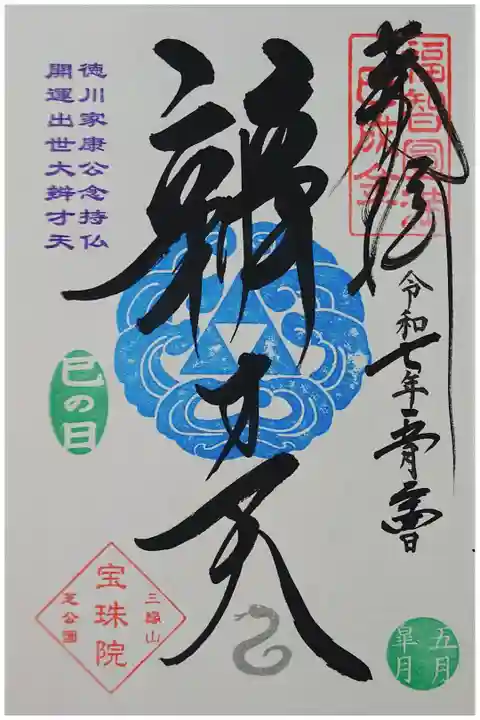 奉拝
福智圓満
令和七年
辨才天
徳川家康公念持仏
開運出世大辨才天
巳の日
三縁山
宝珠院
芝公園
五月
皐月